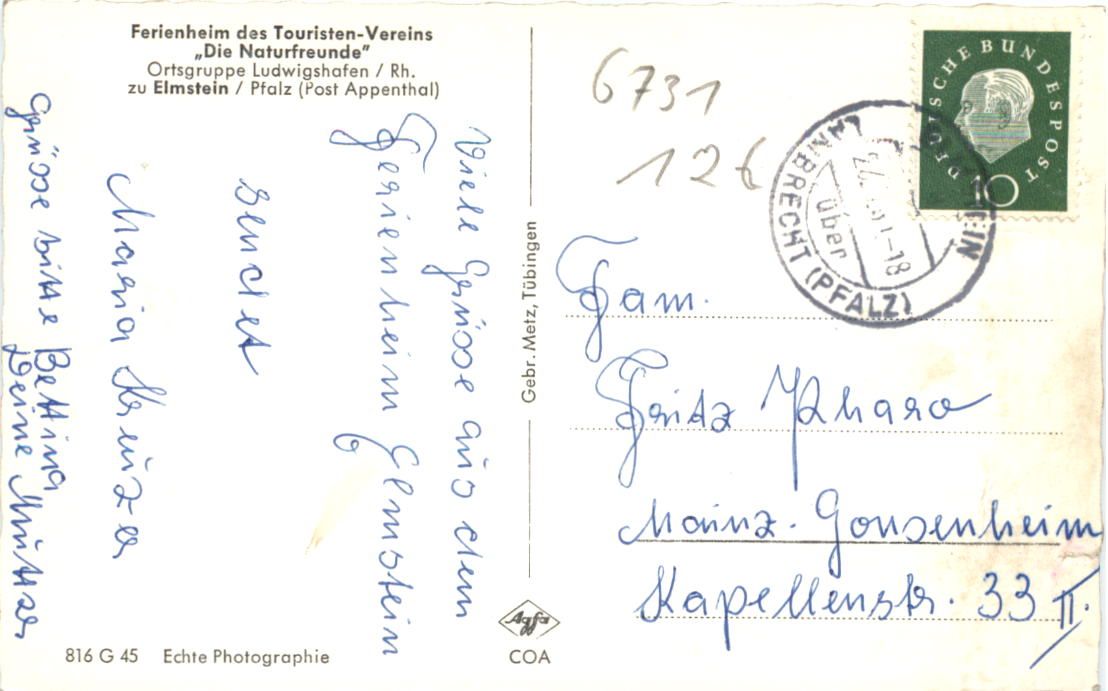 Ferienheim des Touristen-Vereins
„Die Naturfreunde”
Ortsgruppe Ludwigshafen / Rh.
zu Elmstein / Pfalz (Post Appenthal)
Viele Grüsse aus dem
Ferienheim Elmstein
sendet
Maria
Grüsse bitte Bettina
Deine Mutter
816 G 45 Echte Photographie
Gebr. Metz, Tübingen
Agfa
COA
6731
12 €
DEUTSCHE BUNDESPOST
10
über
LAMBRECHT (PFALZ)
-18
Fam.
Fritz
Mainz-Gonsenheim
Kapellenstr. 33 II.